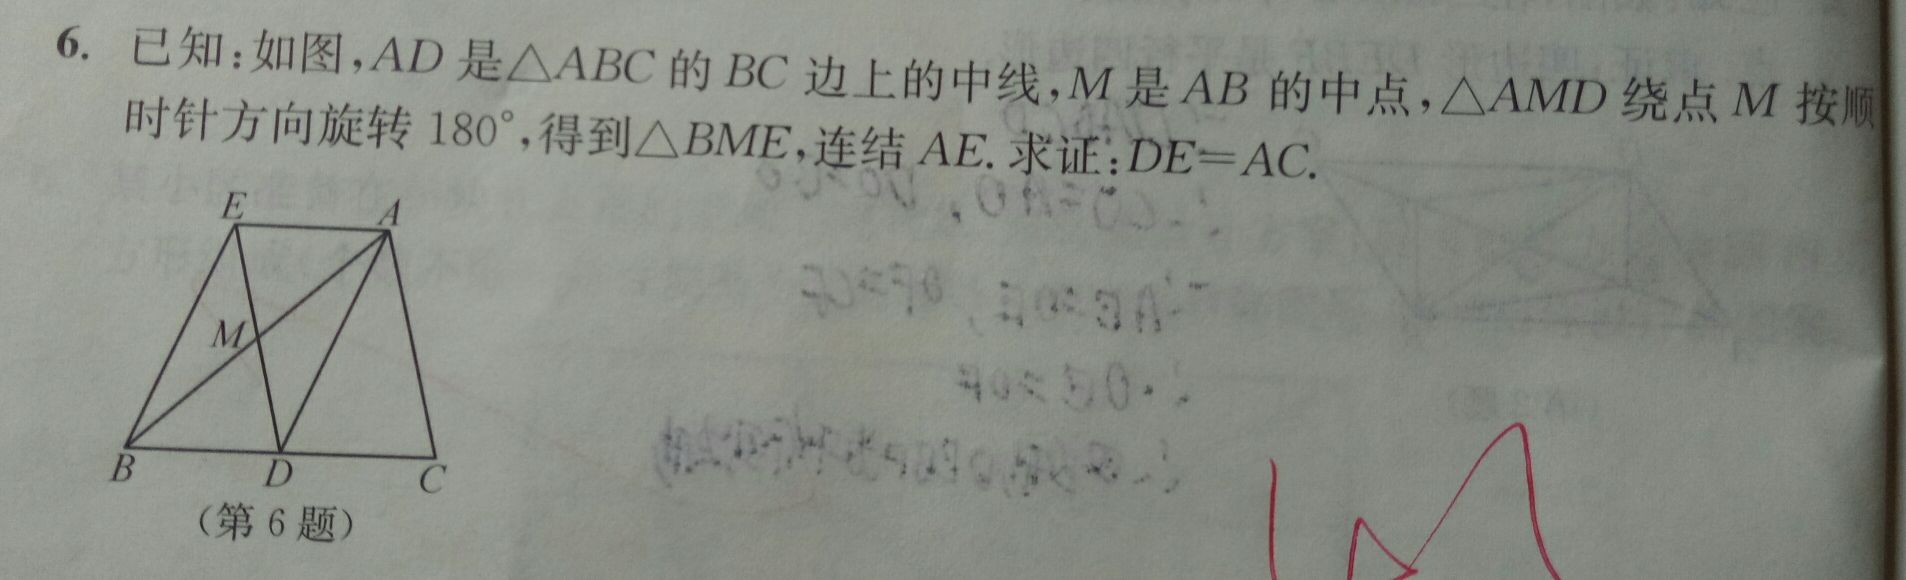 6. 已知:如图,AD 是△ABC 的 BC 边上的中线,M 是 AB 的中点,△AMD 绕点 M 按顺
时针方向旋转 180°,得到△BME,连结 AE. 求证:DE=AC.
E
A
M
B
D
C
(第 6 题)